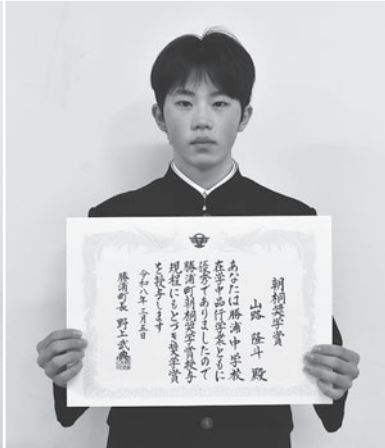 朝桐奨学賞
山路 隆斗 殿
あなたは勝浦中学校
在学中品行学業ともに
優秀でありましたので
勝浦町朝桐奨学賞授与
規程にもとづき奨学賞
を授与します
令和八年三月五日
勝浦町長 野上武典